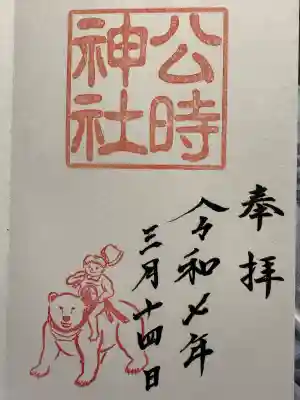 奉拝
公時
神社
令和七年
三月十四日